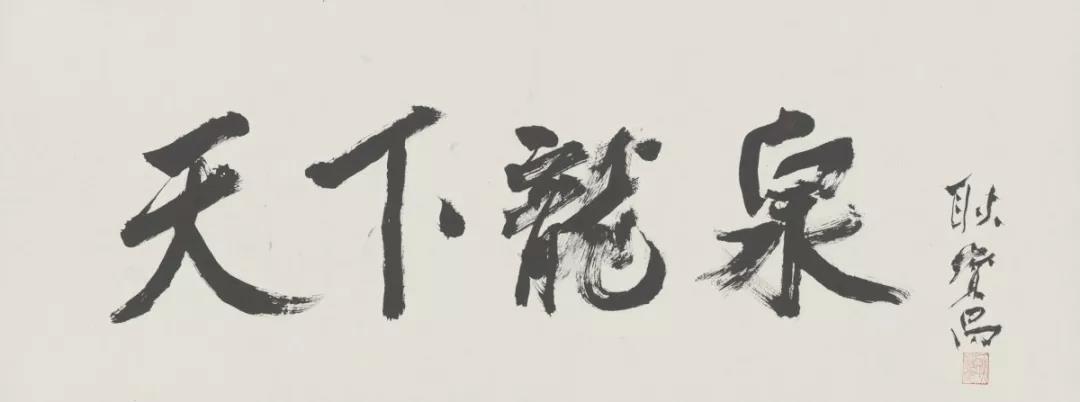 天下龍泉
耿寶昌